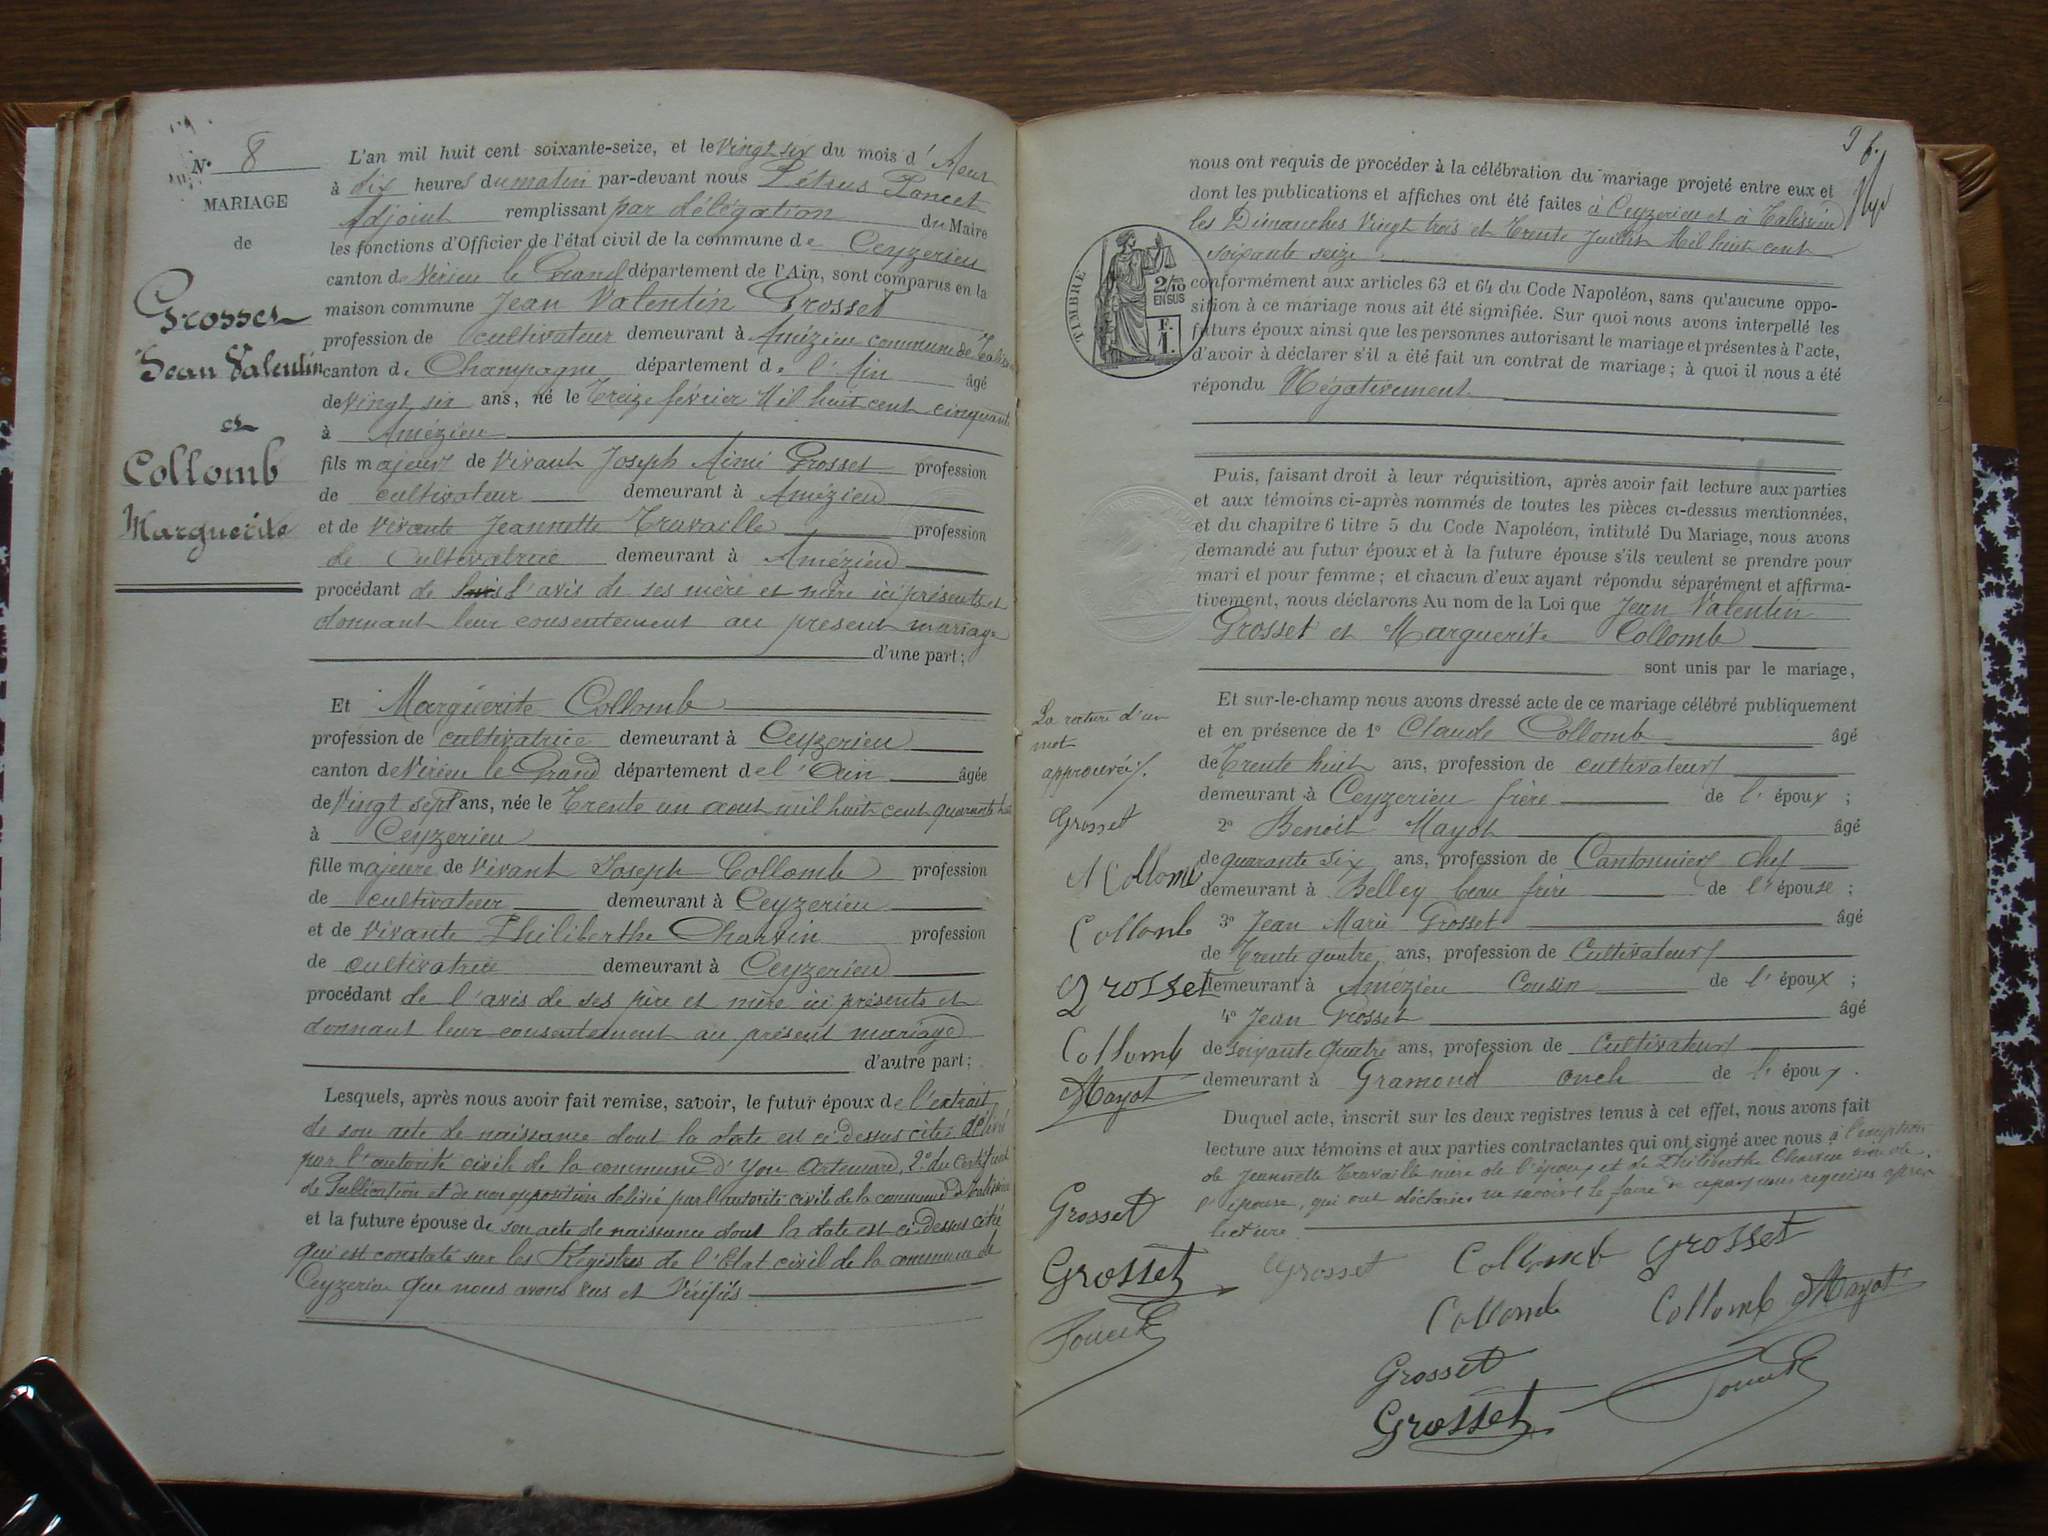 N° 8
MARIAGE
de
Grosset
Jean Valentin
et
Collomb
Marguerite
L'an mil huit cent soixante-seize, et le vingt six du mois d'Aout
à dix heures du matin par-devant nous Pétrus Poncet
Adjoint remplissant par délégation du Maire
les fonctions d'Officier de l'état civil de la commune de Ceyzerieu
canton de Virieu le Grand département de l'Ain, sont comparus en la
maison commune Jean Valentin Grosset
profession de cultivateur demeurant à Amézieu commune de Talissieu
canton de Champagne département de l'Ain âgé
de vingt six ans, né le Treize février Mil huit cent cinquante
à Amézieu
fils majeur de vivant Joseph Aimé Grosset profession
de cultivateur demeurant à Amézieu
et de vivante Jeannette Travaille profession
de Cultivatrice demeurant à Amézieu
procédant de l'avis de ses mère et mère ici présents et
donnant leur consentement au présent mariage
d'une part;
Et Marguérite Collomb
profession de cultivatrice demeurant à Ceyzerieu
canton de Virieu le Grand département de l'Ain âgée
de Vingt sept ans, née le Trente un aout mil huit cent quarante huit
à Ceyzerieu
fille majeure de vivant Joseph Collomb profession
de cultivateur demeurant à Ceyzerieu
et de vivante Philiberthe Charvin profession
de cultivatrice demeurant à Ceyzerieu
procédant de l'avis de ses père et mère ici présents et
donnant leur consentement au présent mariage
d'autre part;
Lesquels, après nous avoir fait remise, savoir, le futur époux de l'extrait
de son acte de naissance dont la date est ci-dessus citée délivré
par l'autorité civile de la commune d'Yon Artemare, 2° du Certificat
de Publication et de non opposition délivré par l'autorité civile de la commune de Talissieu
et la future épouse de son acte de naissance dont la date est ci-dessus citée
qui est constaté sur les Registres de l'Etat civil de la commune de
Ceyzerieu que nous avons vus et Vérifiés
36.
nous ont requis de procéder à la célébration du mariage projeté entre eux et
dont les publications et affiches ont été faites à Ceyzerieu et à Talissieu
les Dimanches Vingt trois et Trente Juillet Mil huit cent
soixante seize
TIMBRE
2/10
EN SUS
F.
1.
conformément aux articles 63 et 64 du Code Napoléon, sans qu'aucune oppo-
sition à ce mariage nous ait été signifiée. Sur quoi nous avons interpellé les
futurs époux ainsi que les personnes autorisant le mariage et présentes à l'acte,
d'avoir à déclarer s'il a été fait un contrat de mariage; à quoi il nous a été
répondu Négativement
Puis, faisant droit à leur réquisition, après avoir fait lecture aux parties
et aux témoins ci-après nommés de toutes les pièces ci-dessus mentionnées,
et du chapitre 6 titre 5 du Code Napoléon, intitulé Du Mariage, nous avons
demandé au futur époux et à la future épouse s'ils veulent se prendre pour
mari et pour femme; et chacun d'eux ayant répondu séparément et affirma-
tivement, nous déclarons Au nom de la Loi que Jean Valentin
Grosset et Marguerite Collomb
sont unis par le mariage,
Et sur-le-champ nous avons dressé acte de ce mariage célébré publiquement
et en présence de 1° Claude Collomb âgé
de Trente huit ans, profession de cultivateur
demeurant à Ceyzerieu frère de l'époux;
2° Benoit Mayot âgé
de quarante six ans, profession de Cantonnier chef
demeurant à Belley beau frère de l'épouse;
3° Jean Marie Grosset âgé
de Trente quatre ans, profession de Cultivateur
demeurant à Amézieu Cousin de l'époux;
4° Jean Grosset âgé
de soixante quatre ans, profession de Cultivateur
demeurant à Gramond oncle de l'époux.
Duquel acte, inscrit sur les deux registres tenus à cet effet, nous avons fait
lecture aux témoins et aux parties contractantes qui ont signé avec nous à l'exception
de Jeannette Travaille mère de l'époux et de Philiberthe Charvin mère de
l'épouse, qui ont déclaré ne savoir le faire de ce par nous requises après
lecture.
La rature d'un
mot
approuvée
Grosset
M Collomb
Collomb
Grosset
Collomb
Mayot
Grosset
Grosset
Poncet
Grosset Collomb Grosset
Collomb Collomb Mayot
Grosset Poncet
Grosset